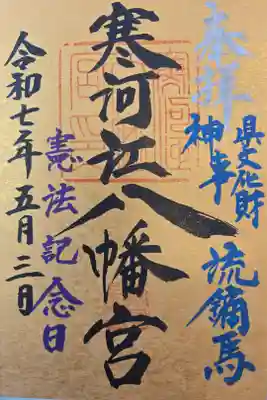 奉拝
県文化財
神事 流鏑馬
寒河江八幡宮
憲法記念日
令和七年五月三日